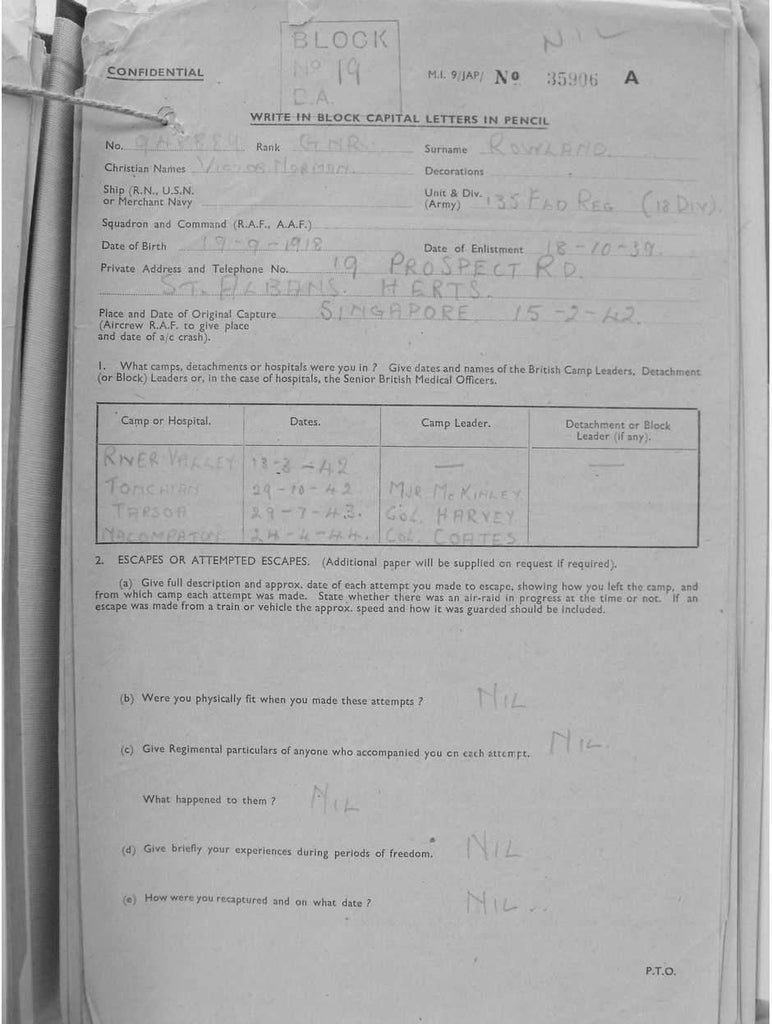 BLOCK
Nº 19
C.A.
NIL
CONFIDENTIAL
M.I. 9/JAP/ Nº 35906 A
WRITE IN BLOCK CAPITAL LETTERS IN PENCIL
No. Rank GNR Surname ROWLAND
Christian Names VICTOR NORMAN Decorations
Ship (R.N., U.S.N.
or Merchant Navy
Unit & Div.
(Army) 135 FLD REG (18 DIV).
Squadron and Command (R.A.F., A.A.F.)
Date of Birth 19-9-1918 Date of Enlistment 18-10-39.
Private Address and Telephone No. 19 PROSPECT RD.
ST. ALBANS. HERTS.
Place and Date of Original Capture SINGAPORE 15-2-42.
(Aircrew R.A.F. to give place
and date of a/c crash).
1. What camps, detachments or hospitals were you in ? Give dates and names of the British Camp Leaders, Detachment
(or Block) Leaders or, in the case of hospitals, the Senior British Medical Officers.
Camp or Hospital. Dates. Camp Leader. Detachment or Block
Leader (if any).
RIVER VALLEY — —
TONCHAN 29-10-42 MJR MCKINLEY
TARSOA 29-7-43. COL. HARVEY
24-4-44. COL. COATES
2. ESCAPES OR ATTEMPTED ESCAPES. (Additional paper will be supplied on request if required).
(a) Give full description and approx. date of each attempt you made to escape, showing how you left the camp, and
from which camp each attempt was made. State whether there was an air-raid in progress at the time or not. If an
escape was made from a train or vehicle the approx. speed and how it was guarded should be included.
(b) Were you physically fit when you made these attempts ? NIL
(c) Give Regimental particulars of anyone who accompanied you on each attempt. NIL.
What happened to them ? NIL
(d) Give briefly your experiences during periods of freedom. NIL
(e) How were you recaptured and on what date ? NIL..
P.T.O.